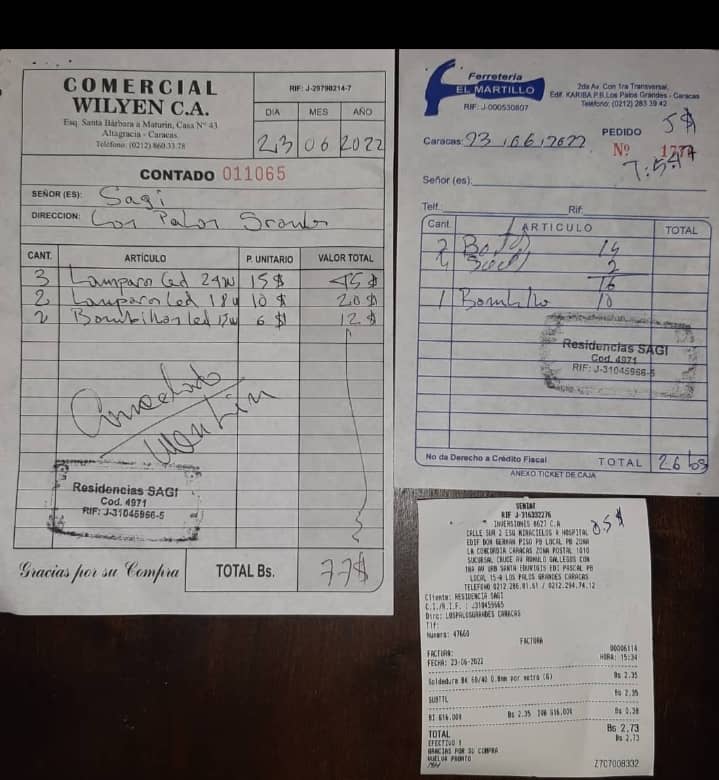 COMERCIAL
WILYEN C.A.
Esq. Santa Bárbara a Maturín, Casa N° 43
Altagracia - Caracas.
Teléfono: (0212) 860.33.78
RIF: J-29798214-7
DIA MES AÑO
23 06 2022
CONTADO 011065
SEÑOR (ES): Sagi
DIRECCION: Los Palos Grandes
CANT. ARTÍCULO P. UNITARIO VALOR TOTAL
3 Lampara Led 24w 15$ 45$
2 Lampara Led 18w 10$ 20$
2 Bombillos led 12w 6$ 12$
Cancelado
Residencias SAGI
Cod. 4971
RIF: J-31045966-5
Gracias por su Compra TOTAL Bs. 77$
Ferretería
EL MARTILLO
RIF: J-000530807
2da Av. Con 1ra Transversal,
Edif. KARIBA P.B. Los Palos Grandes - Caracas
Teléfono: (0212) 283 39 42
5$
Caracas: 23 06 2022
PEDIDO
Nº
Señor (es):
Telf: Rif:
Cant. ARTICULO TOTAL
2 14
2
16
1 Bombillo 10
Residencias SAGI
Cod. 4971
RIF: J-31045966-5
No da Derecho a Crédito Fiscal TOTAL 26 bs
ANEXO TICKET DE CAJA
SENIAT
RIF J-316332276
INVERSIONES 8627 C.A
CALLE SUR 2 ESQ MIRACIELOS A HOSPITAL
EDIF DON GERMAN PISO PB LOCAL PB ZONA
LA CONCORDIA CARACAS ZONA POSTAL 1010
SUCURSAL CRUCE AV ROMULO GALLEGOS CON
1RA AV URB SANTA EDUVIGIS EDI PASCAL PB
LOCAL 15-A LOS PALOS GRANDES CARACAS
TELEFONO 0212.286.01.61 / 0212.284.74.12
Cliente: RESIDENCIA SAGI
C.I./R.I.F. : J310459665
Dirc: LOSPALOSGRANDES CARACAS
Tlf:
Numero: 47660
FACTURA
FACTURA: 00006114
FECHA: 23-06-2022 HORA: 15:34
Soldadura BK 60/40 0.8mm por metro (G) Bs 2,35
SUBTTL Bs 2,35
BI G16,00% Bs 2,35 IVA G16,00% Bs 0,38
TOTAL Bs 2,73
EFECTIVO 1 Bs 2,73
GRACIAS POR SU COMPRA
VUELVA PRONTO
MH Z7C7008332